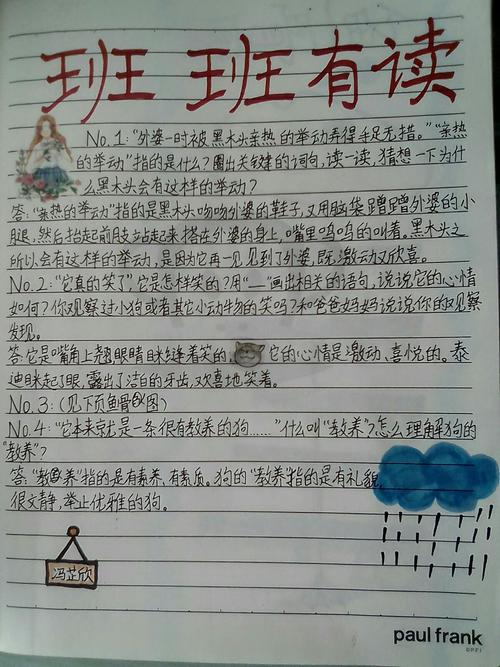 班班有读
No.1:“外婆一时被黑木头亲热的举动弄得手足无措。”“亲热
的举动”指的是什么?圈出关键的词句,读一读,猜想一下为什
么黑木头会有这样的举动?
答:“亲热的举动”指的是黑木头吻吻外婆的鞋子,又用脑袋蹭蹭外婆的小
腿,然后抬起前肢站起来搭在外婆的身上,嘴里呜呜的叫着。黑木头之
所以会有这样的举动,是因为它再一见见到了外婆,既激动又欣喜。
No.2:“它真的笑了”,它是怎样笑的?用“—”画出相关的语句,说说它的心情
如何?你观察过小狗或者其它小动物的笑吗?和爸爸妈妈说说你的观察
发现。
答:它是嘴角上翘,眼睛眯缝着笑的, 它的心情是激动、喜悦的。泰
迪眯起了眼,露出了洁白的牙齿,欢喜地笑着。
No.3:(见下页鱼骨图)
No.4:“它本来就是一条很有教养的狗……”什么叫“教养”?怎么理解狗的
“教养”?
答:“教养”指的是有素养、有素质。狗的“教养”指的是有礼貌,
很文静,举止优雅的狗。
冯芷欣
paul frank